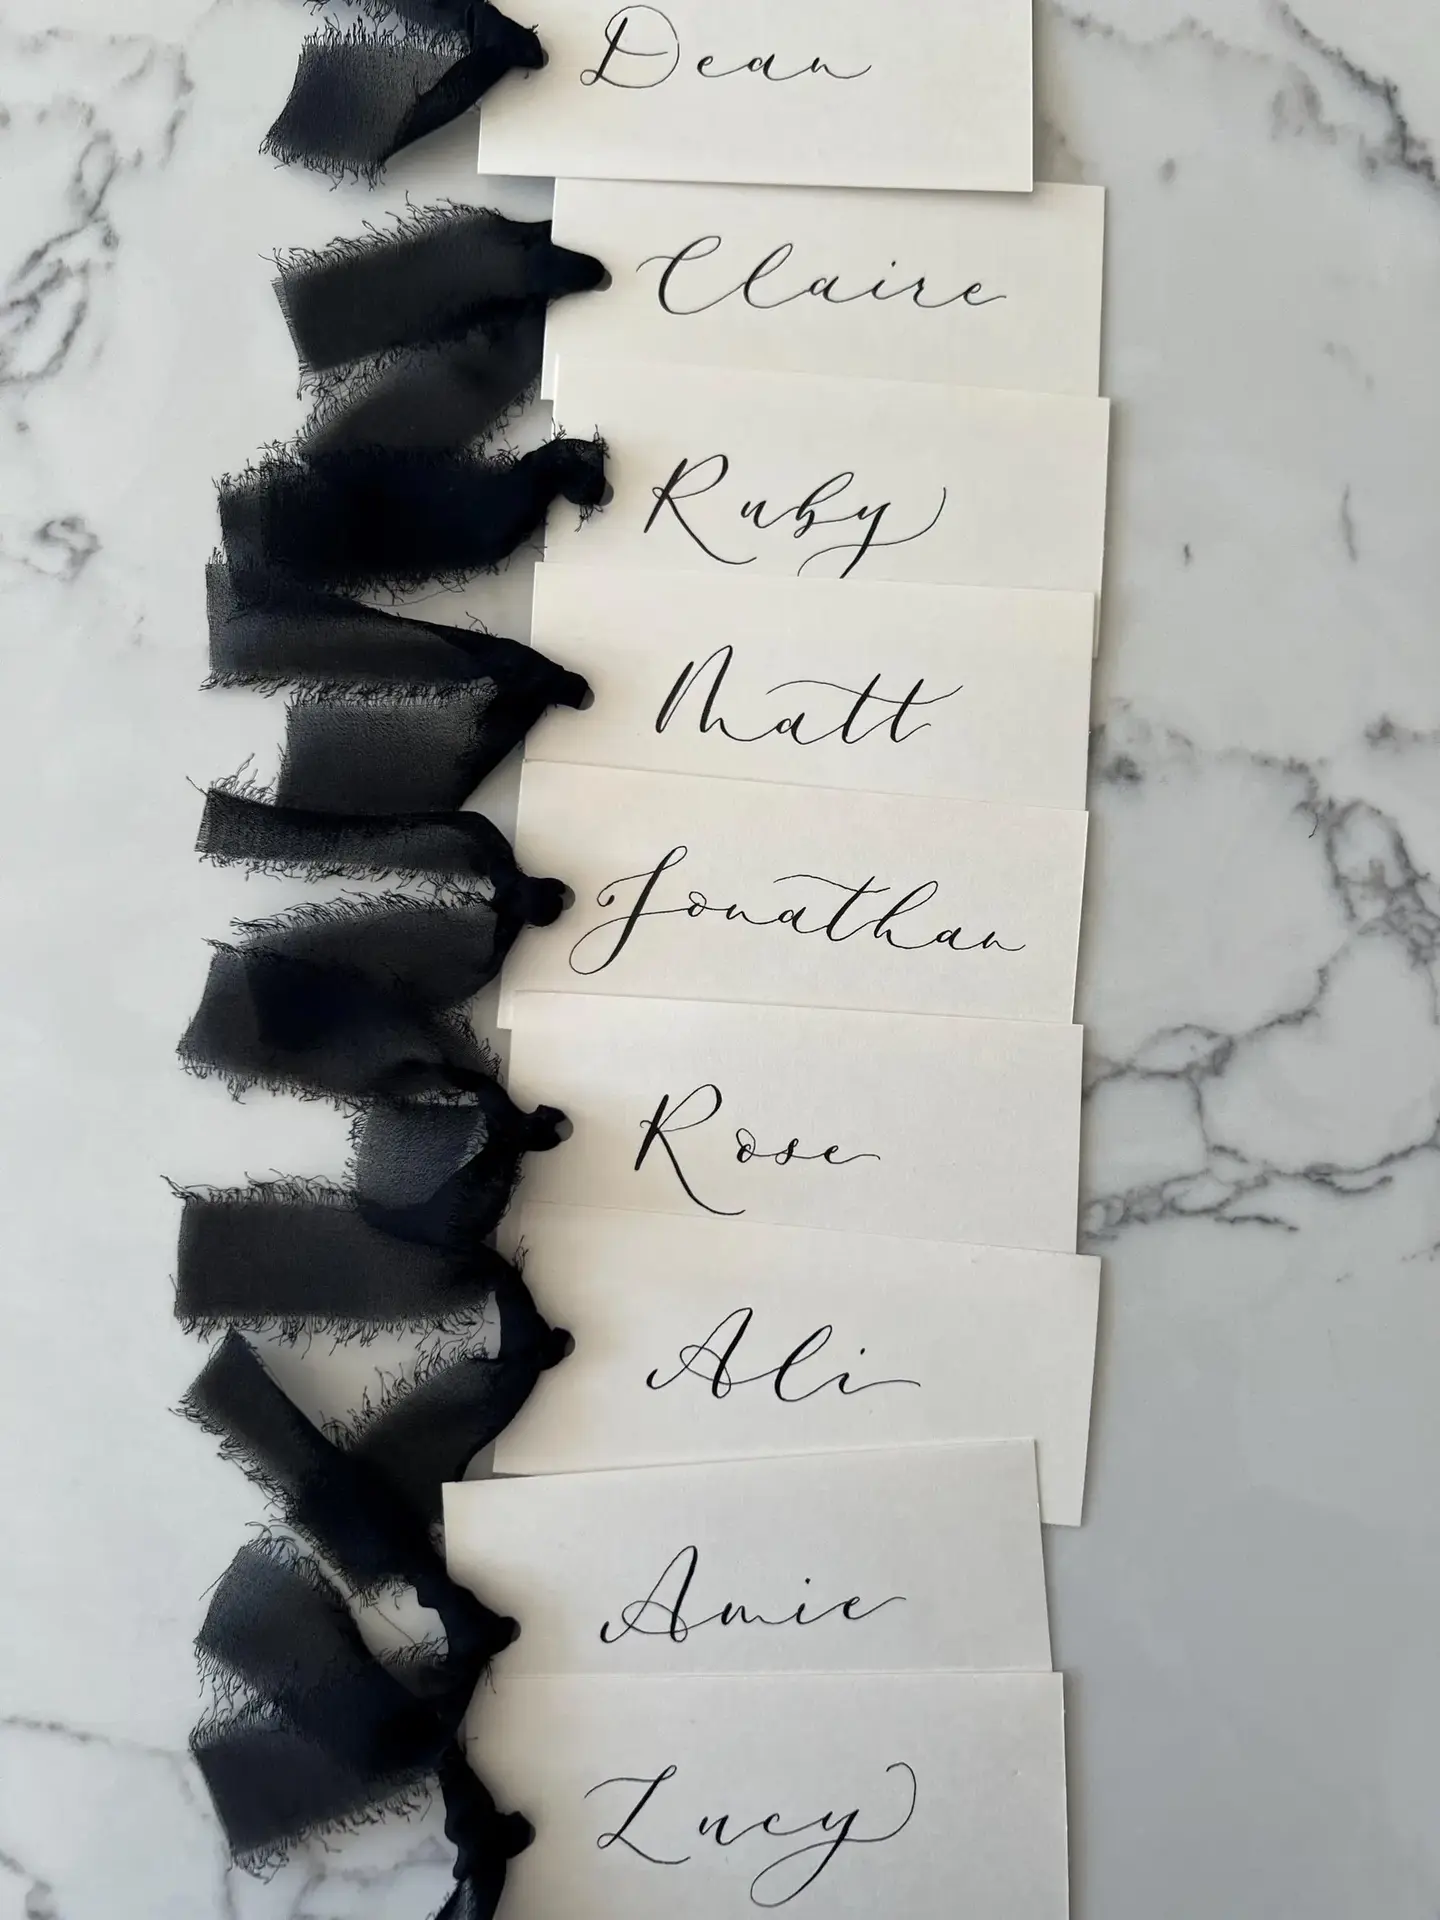 Dean
Claire
Ruby
Matt
Jonathan
Rose
Ali
Amie
Lucy